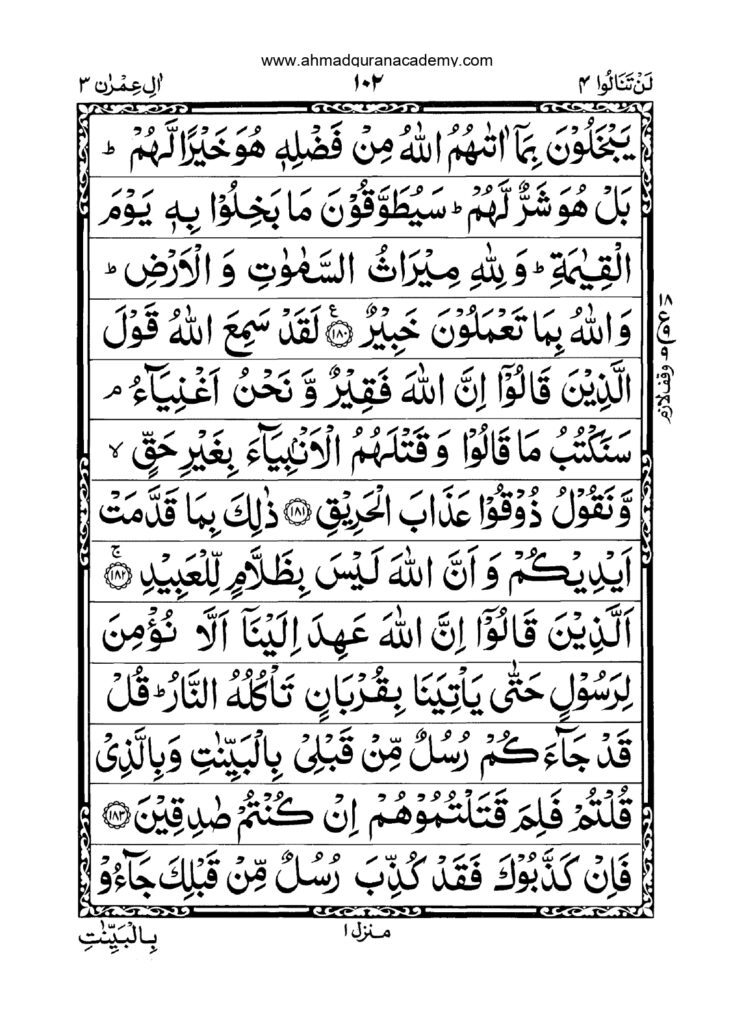 www.ahmadquranacademy.com
لَنْ تَنَالُوا ۴ ۱۰۲ اٰلِ عِمْرٰن ۳
يَبْخَلُوْنَ بِمَاۤ اٰتٰىهُمُ اللّٰهُ مِنْ فَضْلِهٖ هُوَ خَيْرًا لَّهُمْ ؕ
بَلْ هُوَ شَرٌّ لَّهُمْ ؕ سَيُطَوَّقُوْنَ مَا بَخِلُوْا بِهٖ يَوْمَ
الْقِيٰمَةِ ؕ وَ لِلّٰهِ مِيْرَاثُ السَّمٰوٰتِ وَ الْاَرْضِ ؕ
وَ اللّٰهُ بِمَا تَعْمَلُوْنَ خَبِيْرٌ ﴿۱۸۰﴾ ع لَقَدْ سَمِعَ اللّٰهُ قَوْلَ
الَّذِيْنَ قَالُوْۤا اِنَّ اللّٰهَ فَقِيْرٌ وَّ نَحْنُ اَغْنِيَآءُ م
سَنَكْتُبُ مَا قَالُوْا وَ قَتْلَهُمُ الْاَنْۢبِيَآءَ بِغَيْرِ حَقٍّ لا
وَّ نَقُوْلُ ذُوْقُوْا عَذَابَ الْحَرِيْقِ ﴿۱۸۱﴾ ذٰلِكَ بِمَا قَدَّمَتْ
اَيْدِيْكُمْ وَ اَنَّ اللّٰهَ لَيْسَ بِظَلَّامٍ لِّلْعَبِيْدِ ﴿۱۸۲﴾ ج
اَلَّذِيْنَ قَالُوْۤا اِنَّ اللّٰهَ عَهِدَ اِلَيْنَاۤ اَلَّا نُؤْمِنَ
لِرَسُوْلٍ حَتّٰى يَاْتِيَنَا بِقُرْبَانٍ تَاْكُلُهُ النَّارُ ؕ قُلْ
قَدْ جَآءَكُمْ رُسُلٌ مِّنْ قَبْلِىْ بِالْبَيِّنٰتِ وَ بِالَّذِىْ
قُلْتُمْ فَلِمَ قَتَلْتُمُوْهُمْ اِنْ كُنْتُمْ صٰدِقِيْنَ ﴿۱۸۳﴾
فَاِنْ كَذَّبُوْكَ فَقَدْ كُذِّبَ رُسُلٌ مِّنْ قَبْلِكَ جَآءُوْ
۱۸
ع
۹
م وقف لازم
منزل ۱
بِالْبَيِّنٰتِ